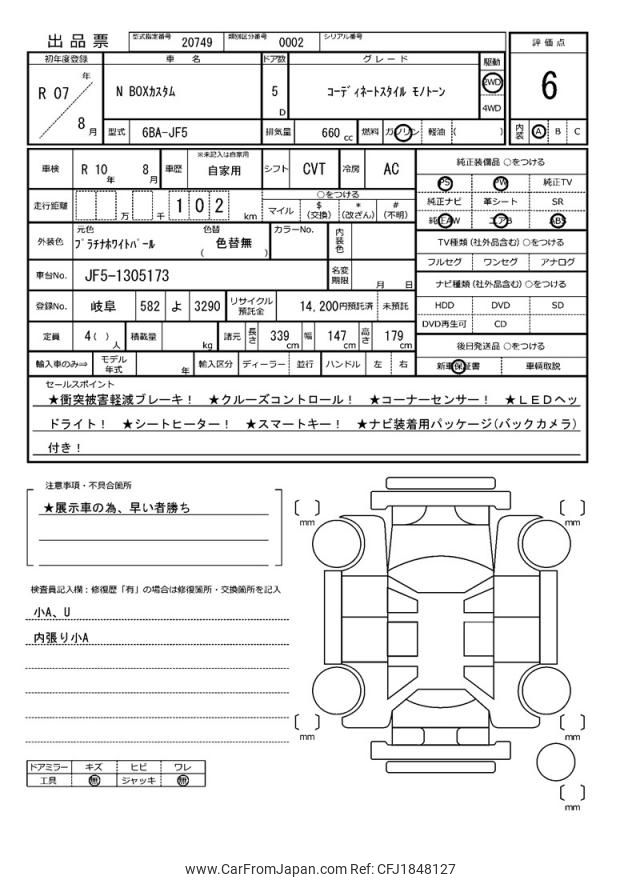 出品票 型式指定番号 20749 類別区分番号 0002 シリアル番号
評価点
6
初年度登録 車名 ドア数 グレード 駆動
R 07 年 8 月
N BOXカスタム 5 D コーディネートスタイル モノトーン 2WD 4WD
型式 6BA-JF5 排気量 660 cc 燃料 ガソリン 軽油 ( ) 内装 A B C
車検 R 10 年 8 月 車歴 ※未記入は自家用 自家用 シフト CVT 冷房 AC
走行距離 万 千 1 0 2 km ○をつける
マイル $(交換) *(改ざん) #(不明)
外装色 元色 プラチナホワイトパール 色替 ( 色替無 ) カラーNo. 内装色
車台No. JF5-1305173 名変期限 月 日
登録No. 岐阜 582 よ 3290 リサイクル預託金 14,200円預託済 未預託
定員 4( ) 人 積載量 kg 諸元 長さ 339 cm 幅 147 cm 高さ 179 cm
輸入車のみ⇒ モデル年式 年 輸入区分 ディーラー 並行 ハンドル 左 右
純正装備品 ○をつける
PS PW 純正TV
純正ナビ 革シート SR
純正AW エアB ABS
TV種類 (社外品含む) ○をつける
フルセグ ワンセグ アナログ
ナビ種類 (社外品含む) ○をつける
HDD DVD SD
DVD再生可 CD
後日発送品 ○をつける
新車保証書 車輌取説
セールスポイント
★衝突被害軽減ブレーキ！ ★クルーズコントロール！ ★コーナーセンサー！ ★ＬＥＤヘッ
ドライト！ ★シートヒーター！ ★スマートキー！ ★ナビ装着用パッケージ(バックカメラ)
付き！
注意事項・不具合箇所
★展示車の為、早い者勝ち
検査員記入欄：修復歴「有」の場合は修復箇所・交換箇所を記入
小A、U
内張り小A
ドアミラー キズ ヒビ ワレ
工具 無 ジャッキ 無
mm
mm
mm
mm
mm
www.CarFromJapan.com Ref: CFJ1848127